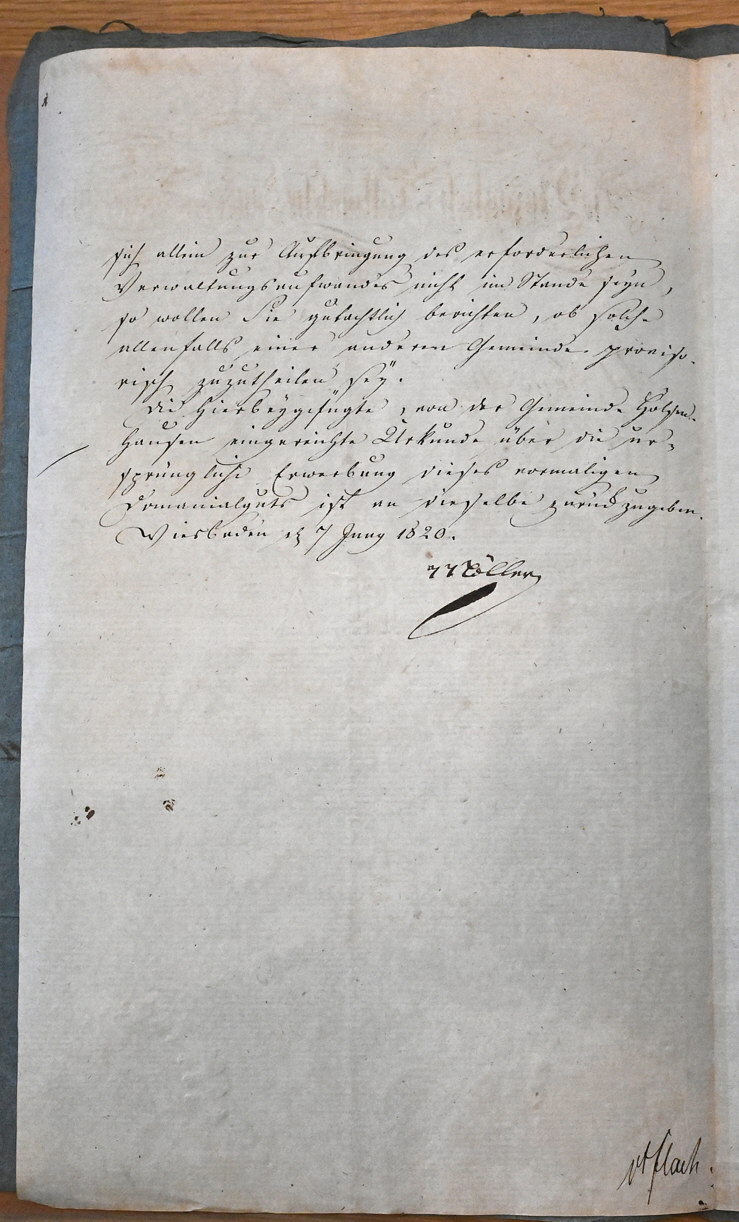 sich allein zur Aufbringung des erforderlichen
Verwaltungsaufwandes nicht im Stande seyn,
so wollen Sie gutachtlich berichten, ob solche
allenfalls einer anderen Gemeinde proviso-
risch zuzutheilen sey.
Die hierbeygefügte, von der Gemeinde Holzen-
hausen eingereichte Urkunde über die ur-
sprüngliche Erwerbung dieses vormaligen
Domanialguts ist an dieselbe zurückzugeben.
Wiesbaden d 7 Juny 1820.
Möller
vt flach.